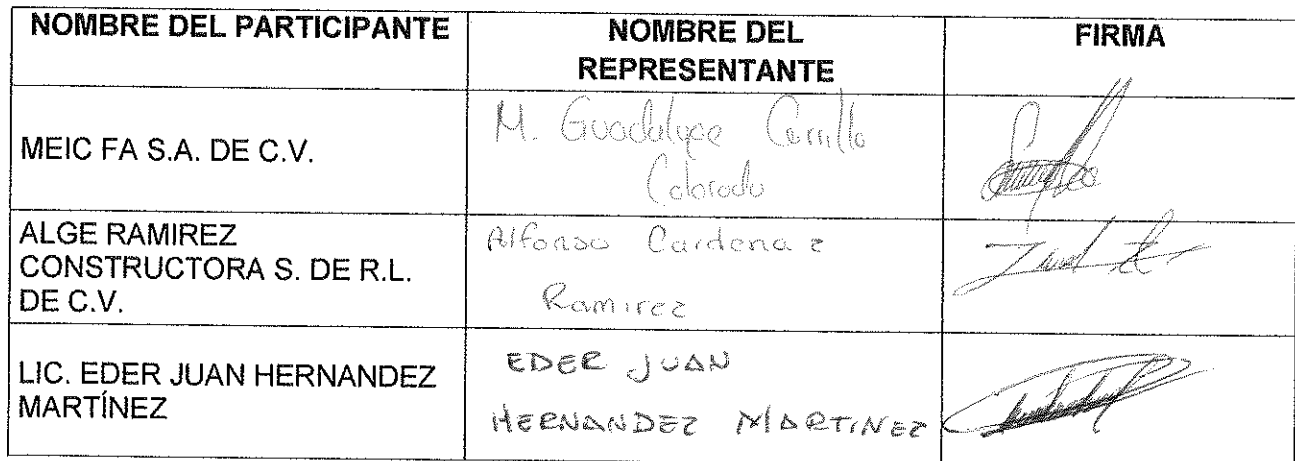 NOMBRE DEL PARTICIPANTE
NOMBRE DEL
REPRESENTANTE
FIRMA
MEIC FA S.A. DE C.V.
M. Guadalupe Carrillo
Colorado
ALGE RAMIREZ
CONSTRUCTORA S. DE R.L.
DE C.V.
Alfonso Cardenaz
Ramirez
LIC. EDER JUAN HERNANDEZ
MARTÍNEZ
EDER JUAN
HERNANDEZ MARTINEZ